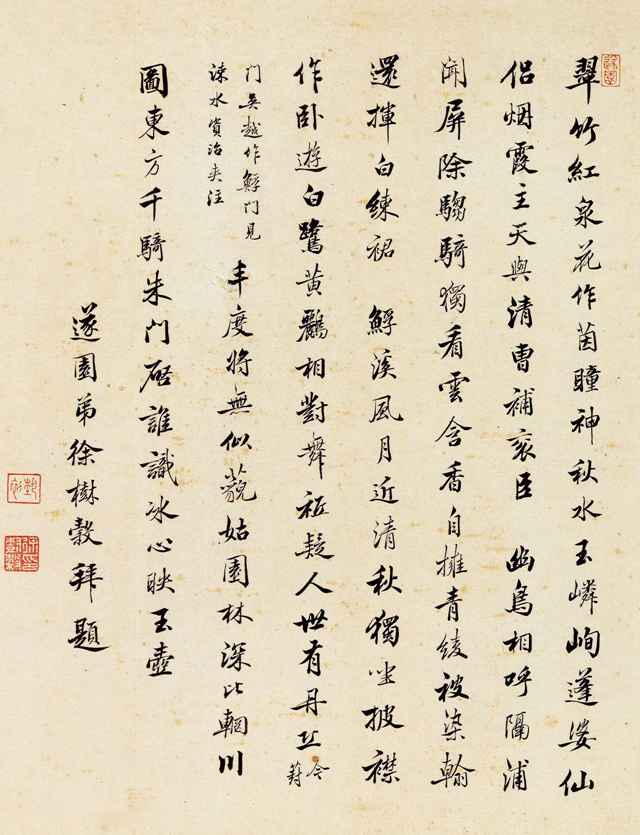 翠竹紅泉花作茵瞳神秋水玉嶙峋蓬婆仙
侣烟霞主天與清曹補衮臣 幽鳥相呼隔浦
開屏除騶騎獨看雲含香自擁青綾被染翰
還揮白練裙 䱐溪風月近清秋獨坐披襟
作卧遊白鷺黄鸝相對舞秪疑人世有丹丘今葑
門吴越作䱐門見涑水資治夾注丰度將無似藐姑園林深比輞川
圖東方千騎朱門啓誰識冰心映玉壺
遂園弟徐樹穀拜題
藝初
徐印樹穀